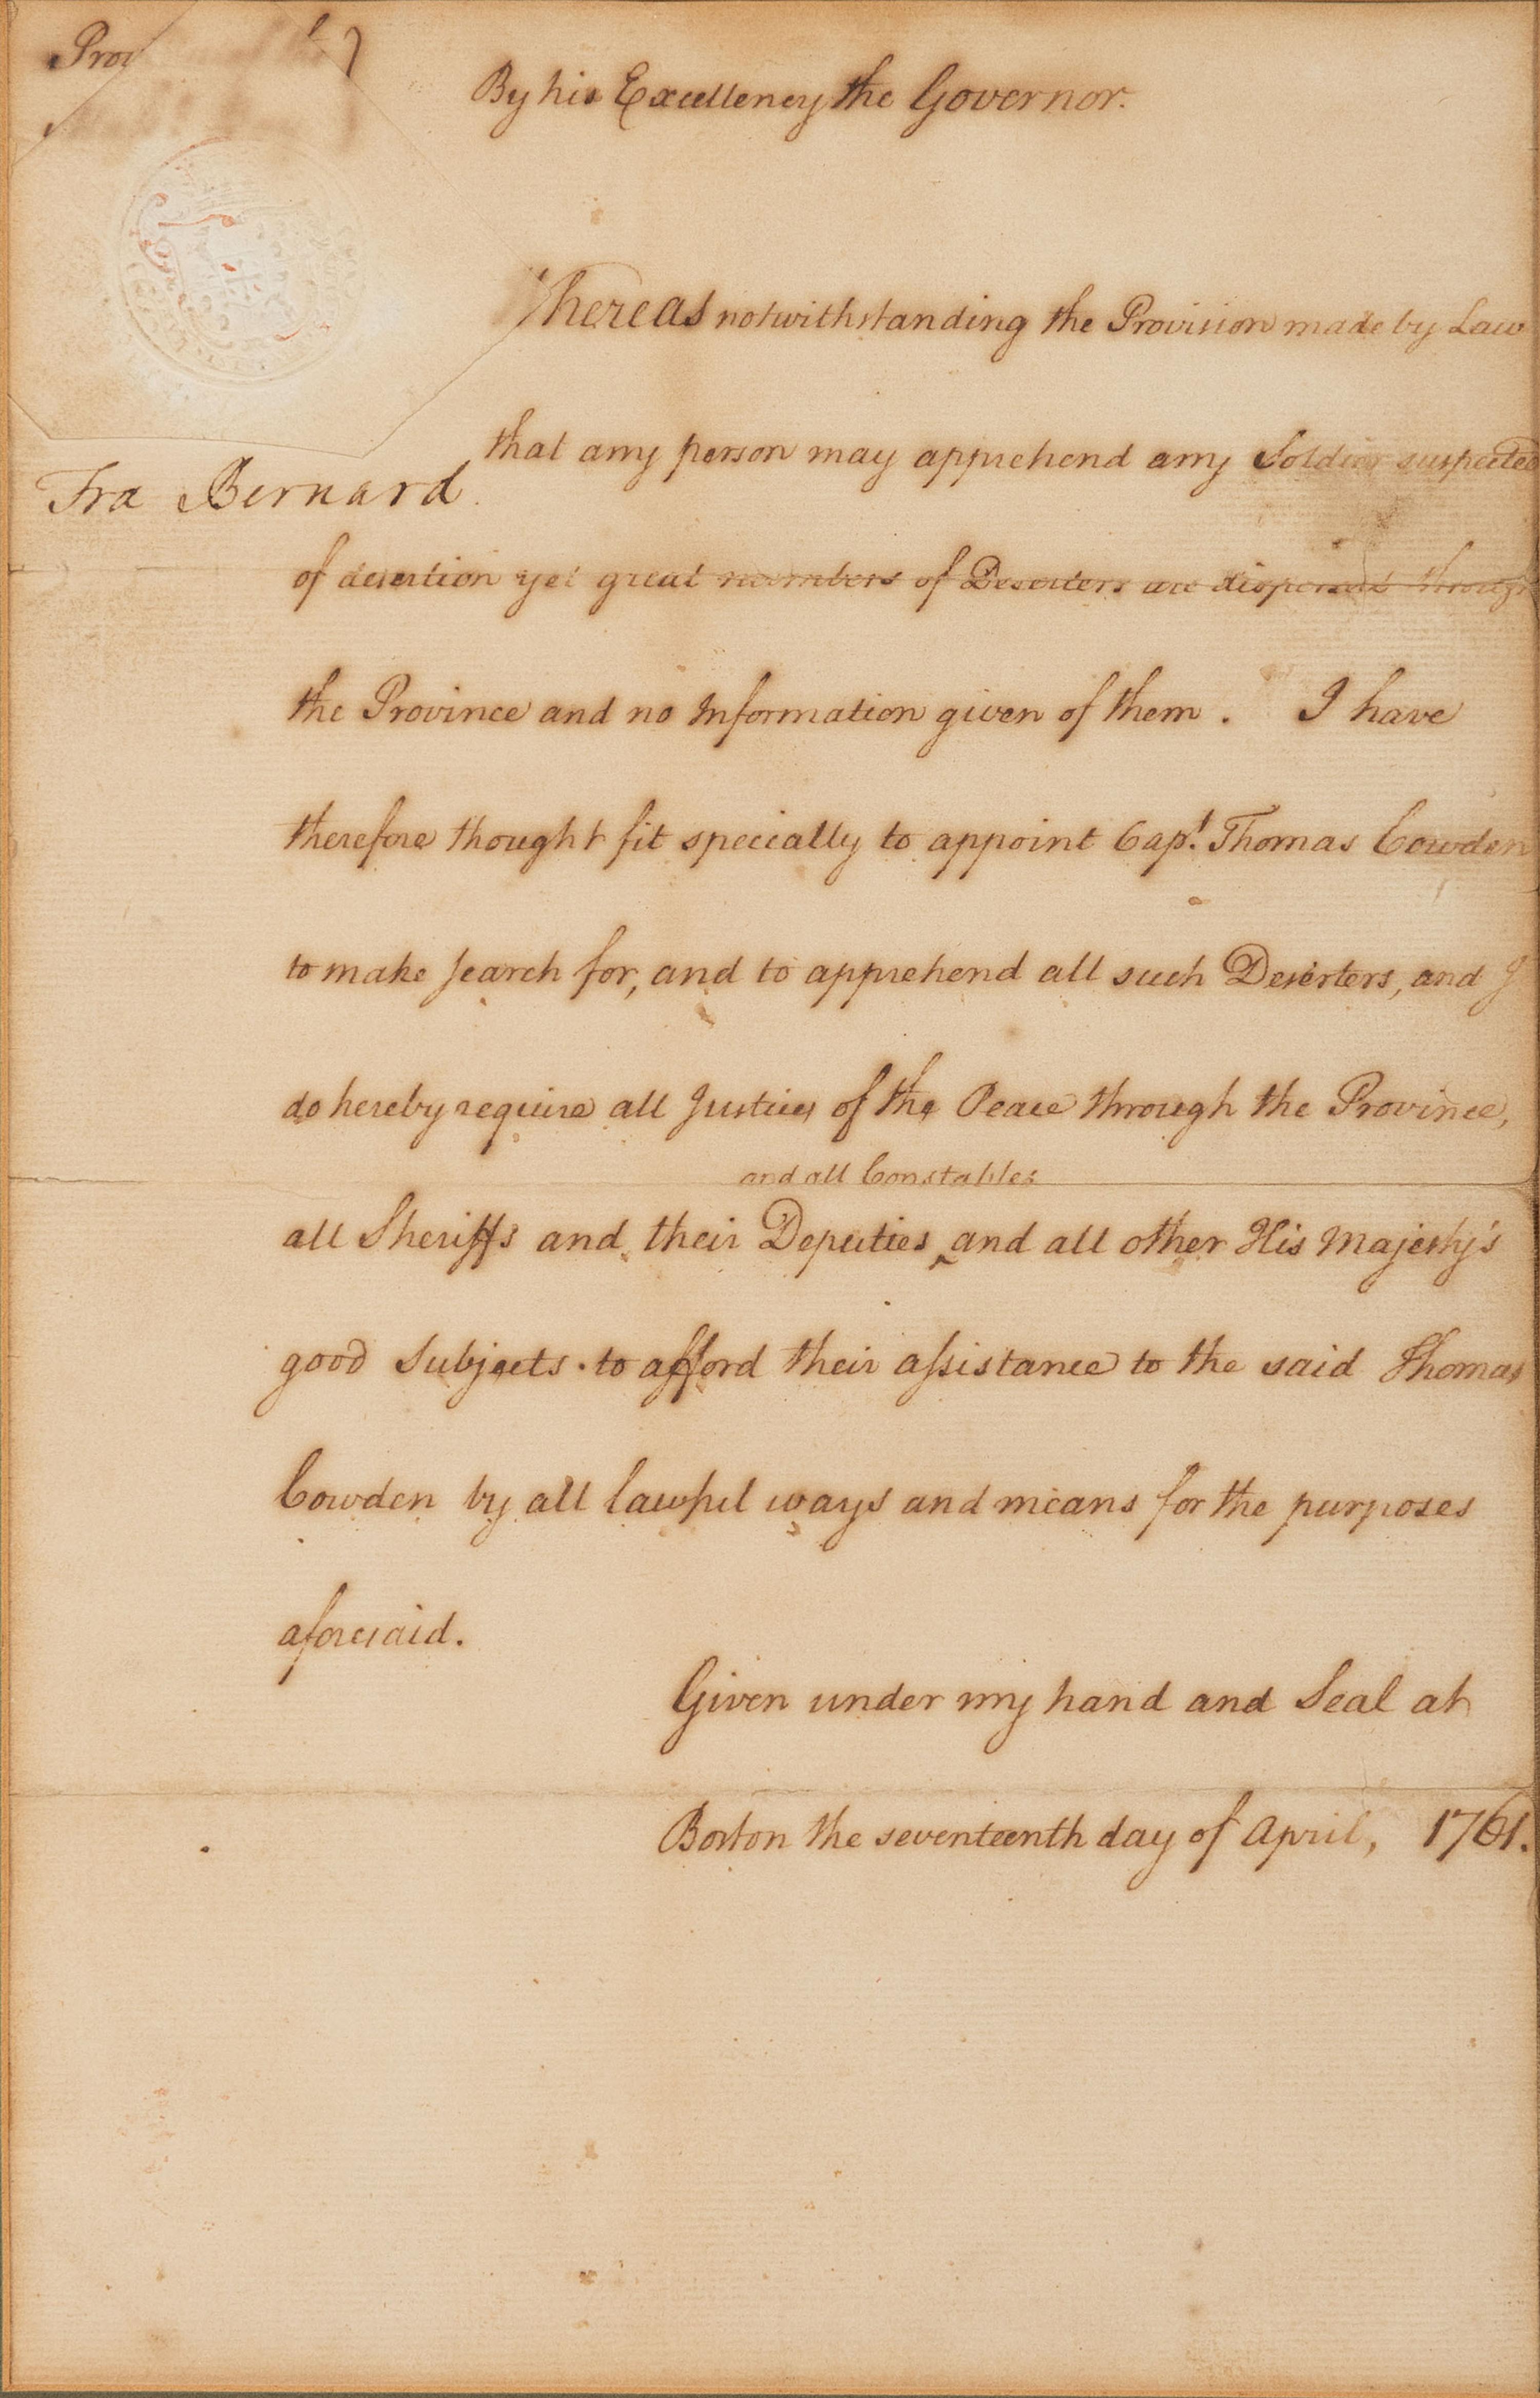 Prov
By his Excellency the Governor.
Whereas notwithstanding the Provision made by Law
that any person may apprehend any Soldier suspected
Fra Bernard
of desertion yet great numbers of Deserters are dispersed through
the Province and no Information given of them. I have
therefore thought fit specially to appoint Capt. Thomas Cowden
to make search for, and to apprehend all such Deserters, and I
do hereby require all Justices of the Peace through the Province,
and all Constables
all Sheriffs and their Deputies ‸ and all other His Majesty's
good Subjects to afford their assistance to the said Thomas
Cowden by all lawful ways and means for the purposes
aforesaid.
Given under my hand and Seal at
Boston the seventeenth day of April, 1761.